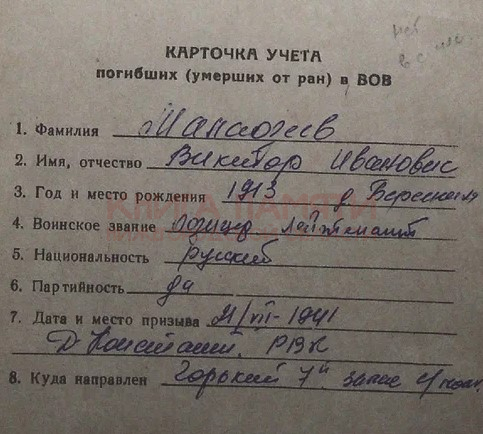 нет
КАРТОЧКА УЧЕТА
погибших (умерших от ран) в ВОВ
1. Фамилия
2. Имя, отчество Виктор Иванович
3. Год и место рождения 1913 д.
КНИГА ПАМЯТИ
4. Воинское звание офицер лейтенант
5. Национальность русский
6. Партийность да
7. Дата и место призыва 1941
РВК
8. Куда направлен Горький 7й запас